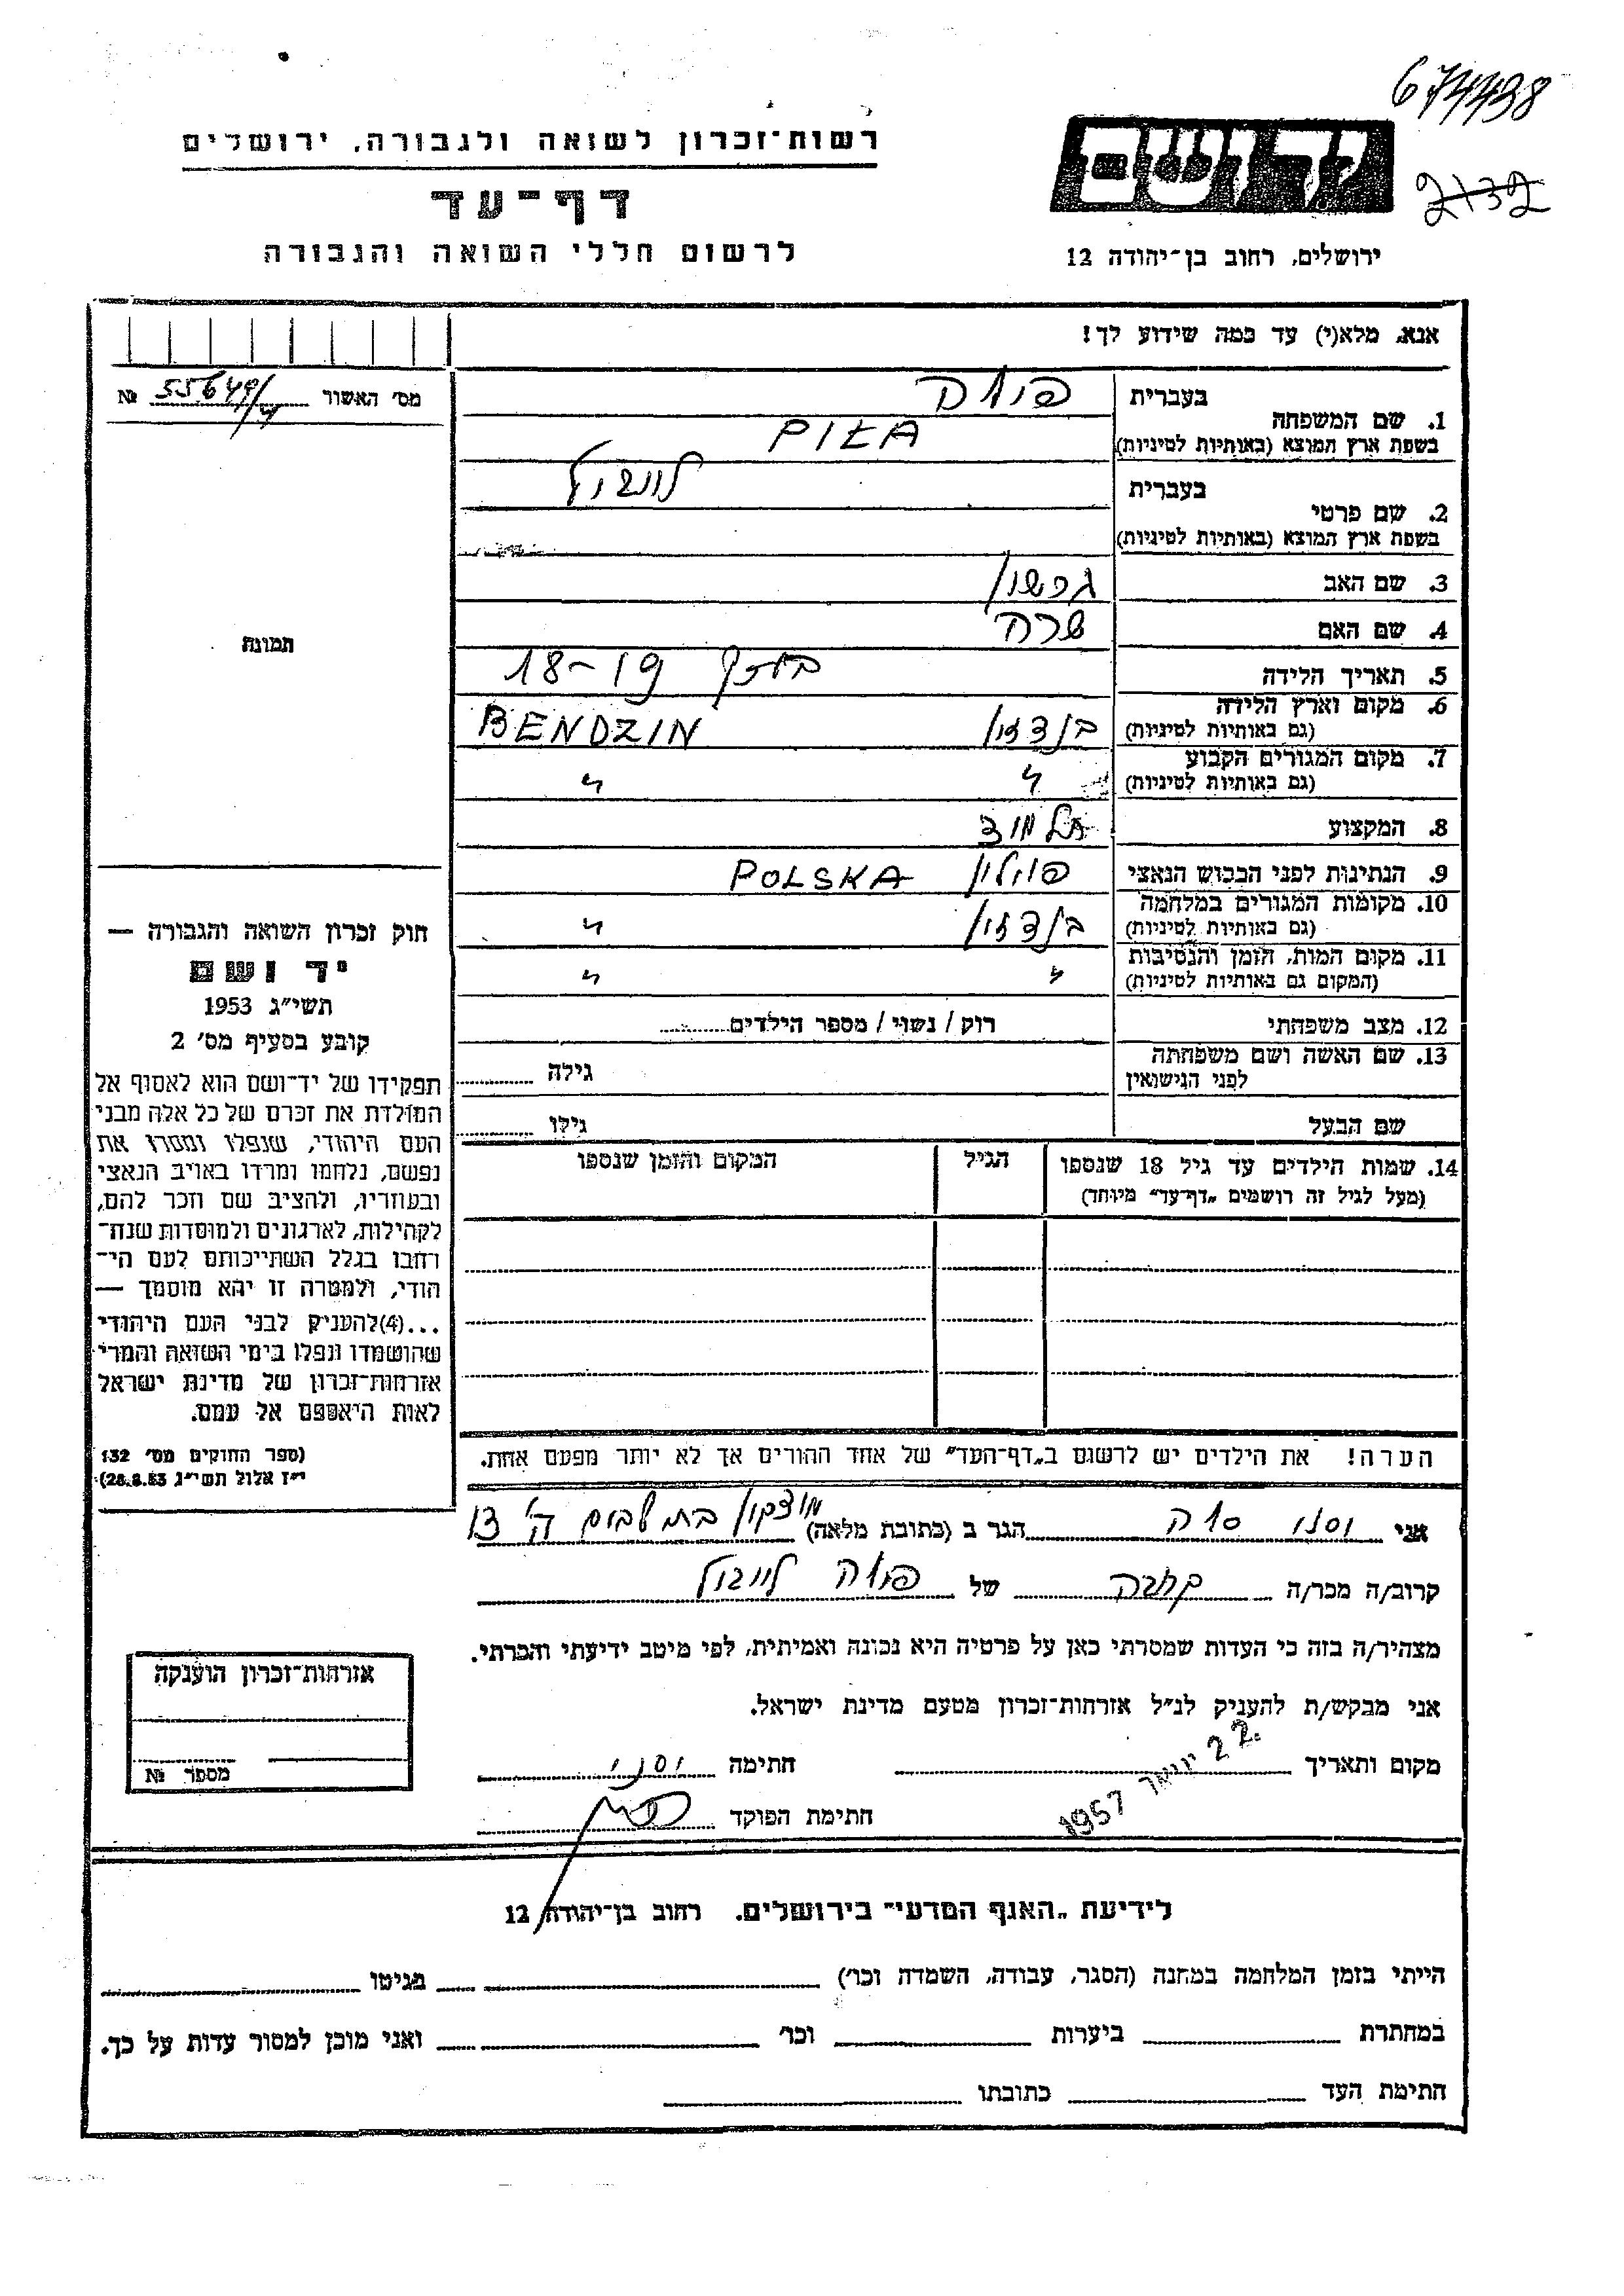 674498
רשות־זכרון לשואה ולגבורה, ירושלים
יד ושם
2132
דף־עד
לרשום חללי השואה והגבורה
ירושלים, רחוב בן־יהודה 12
אנא, מלא(י) עד כמה שידוע לך!
מס' האשור 55649/4 №
בעברית
1. שם המשפחה
בשפת ארץ המוצא (באותיות לטיניות)
בעברית
2. שם פרטי
בשפת ארץ המוצא (באותיות לטיניות)
3. שם האב גרשון
4. שם האם שרה
5. תאריך הלידה 18-19
6. מקום וארץ הלידה בנדזין BENDZIN
(גם באותיות לטיניות)
7. מקום המגורים הקבוע " "
(גם באותיות לטיניות)
8. המקצוע
9. הנתינות לפני הכבוש הנאצי פולין POLSKA
10. מקומות המגורים במלחמה בנדזין "
(גם באותיות לטיניות)
11. מקום המות, הזמן והנסיבות " "
(המקום גם באותיות לטיניות)
12. מצב משפחתי רוק / נשוי / מספר הילדים
13. שם האשה ושם משפחתה גילה
לפני הנישואין
שם הבעל גילו
14. שמות הילדים עד גיל 18 שנספו הגיל המקום והזמן שנספו
(מעל לגיל זה רושמים „דף־עד" מיוחד)
תמונה
חוק זכרון השואה והגבורה —
יד ושם
תשי"ג 1953
קובע בסעיף מס' 2
תפקידו של יד־ושם הוא לאסוף אל
המולדת את זכרם של כל אלה מבני
העם היהודי, שנפלו ומסרו את
נפשם, נלחמו ומרדו באויב הנאצי
ובעוזריו, ולהציב שם וזכר להם,
לקהילות, לארגונים ולמוסדות שנח־
רבו בגלל השתייכותם לעם הי־
הודי, ולמטרה זו יהא מוסמך —
...(4)להעניק לבני העם היהודי
שהושמדו ונפלו בימי השואה והמרי
אזרחות־זכרון של מדינת ישראל
לאות היאספם אל עמם.
(ספר החוקים מס' 132
י"ז אלול תשי"ג 28.8.53)
הערה! את הילדים יש לרשום ב„דף־העד" של אחד ההורים אך לא יותר מפעם אחת.
אני הגר ב (כתובת מלאה) מוצקין
קרוב/ה מכר/ה קרובה של
מצהיר/ה בזה כי העדות שמסרתי כאן על פרטיה היא נכונה ואמיתית, לפי מיטב ידיעתי והכרתי.
אני מבקש/ת להעניק לנ"ל אזרחות־זכרון מטעם מדינת ישראל.
מקום ותאריך 22 ינואר 1957 חתימה
חתימת הפוקד
אזרחות־זכרון הוענקה
מספר №
לידיעת „האגף המדעי" בירושלים, רחוב בן־יהודה 12
הייתי בזמן המלחמה במחנה (הסגר, עבודה, השמדה וכו') בגיטו
במחתרת ביערות וכו' ואני מוכן למסור עדות על כך.
חתימת העד כתובתו